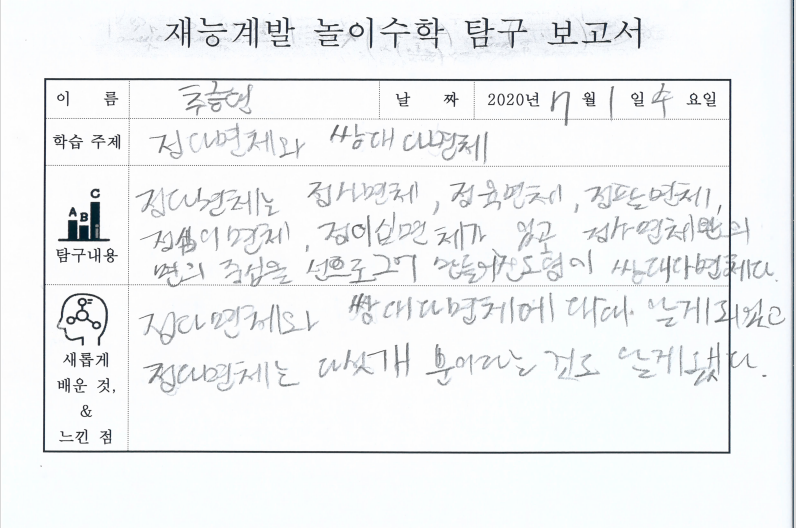 재능계발 놀이수학 탐구 보고서
이 름 추승연 날 짜 2020년 7월 1일 수요일
학습 주제 정다면체와 쌍대 다면체
정다면체는 정사면체, 정육면체, 정팔면체,
정십이면체, 정이십면체가 있고 정다면체의
면의 중심을 선으로 그어 만들어진 도형이 쌍대다면체다.
A B C
탐구내용
정다면체와 쌍대다면체에 대해 알게되었고
정다면체는 다섯개 뿐이라는 것도 알게됐다.
새롭게
배운 것,
&
느낀 점